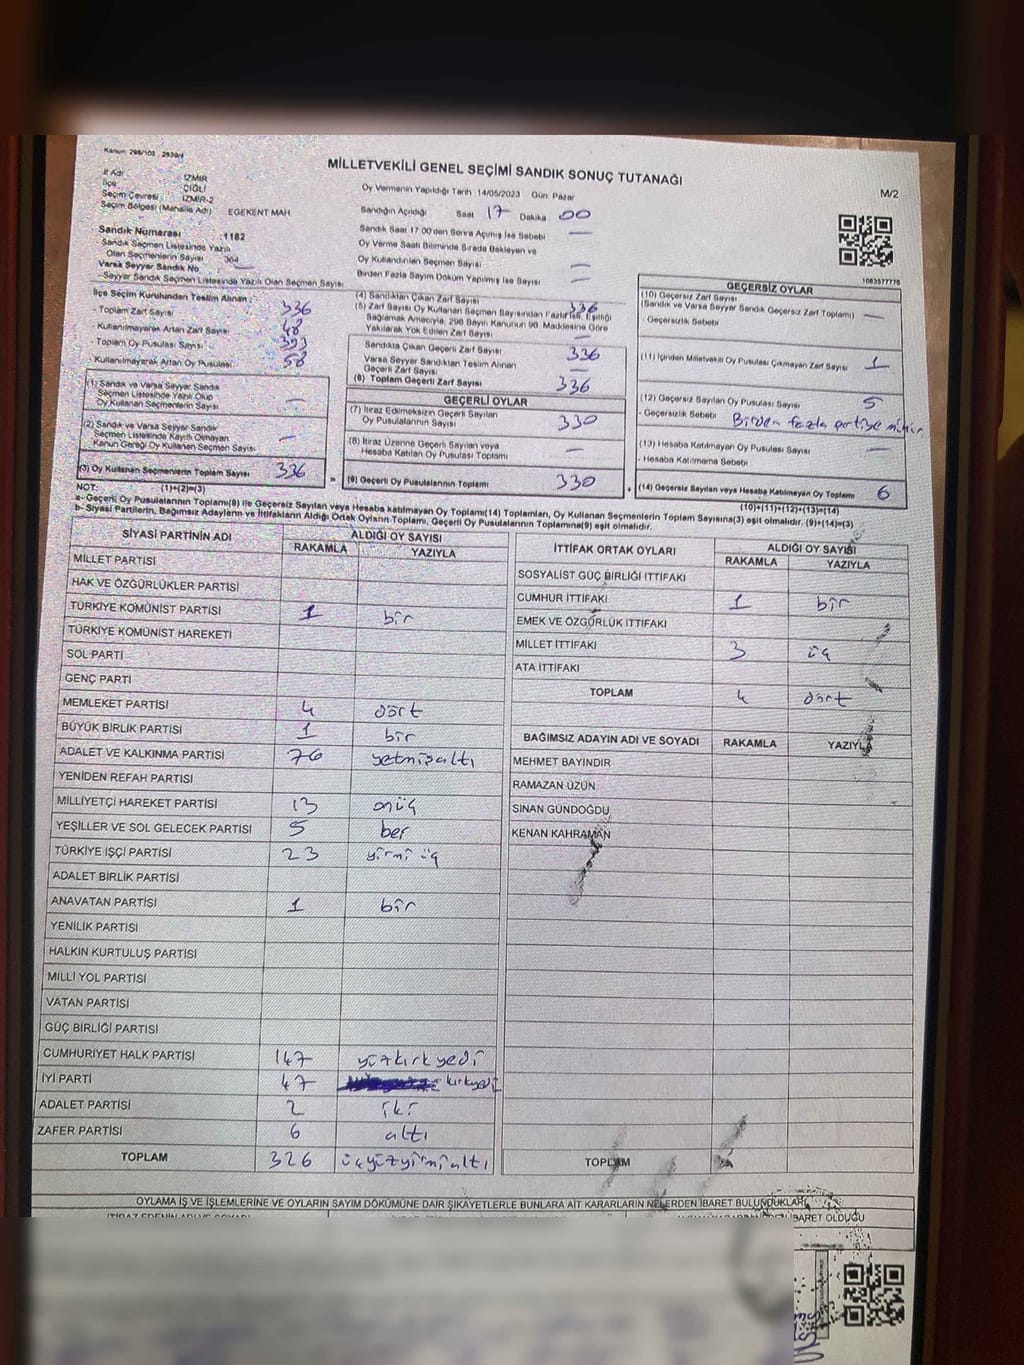 Kanun: 298/105 , 2839/4
MİLLETVEKİLİ GENEL SEÇİMİ SANDIK SONUÇ TUTANAĞI
M/2
İl Adı : İZMİR
İlçe : ÇİĞLİ
Seçim Çevresi : İZMİR-2
Seçim Bölgesi (Mahalle Adı) : EGEKENT MAH.
Oy Vermenin Yapıldığı Tarih 14/05/2023 Gün Pazar
Sandığın Açıldığı Saat 17 Dakika 00
Sandık Saat 17.00'den Sonra Açılmış İse Sebebi —
Oy Verme Saati Bitiminde Sırada Bekleyen ve
Oy Kullandırılan Seçmen Sayısı —
Birden Fazla Sayım Döküm Yapılmış İse Sayısı —
Sandık Numarası : 1182
Sandık Seçmen Listesinde Yazılı
Olan Seçmenlerin Sayısı : 364
Varsa Seyyar Sandık No —
Seyyar Sandık Seçmen Listesinde Yazılı Olan Seçmen Sayısı
1083577776
İlçe Seçim Kurulundan Teslim Alınan :
- Toplam Zarf Sayısı 336
- Kullanılmayarak Artan Zarf Sayısı 48
- Toplam Oy Pusulası Sayısı 393
- Kullanılmayarak Artan Oy Pusulası 58
(1) Sandık ve Varsa Seyyar Sandık
Seçmen Listesinde Yazılı Olup
Oy Kullanan Seçmenlerin Sayısı —
(2) Sandık ve Varsa Seyyar Sandık
Seçmen Listesinde Kayıtlı Olmayan
Kanun Gereği Oy Kullanan Seçmen Sayısı —
(3) Oy Kullanan Seçmenlerin Toplam Sayısı 336
(1)+(2)=(3)
(4) Sandıktan Çıkan Zarf Sayısı 336
(5) Zarf Sayısı Oy Kullanan Seçmen Sayısından Fazla İse, Eşitliği
Sağlamak Amacıyla, 298 Sayılı Kanunun 98. Maddesine Göre
Yakılarak Yok Edilen Zarf Sayısı —
Sandıkta Çıkan Geçerli Zarf Sayısı 336
Varsa Seyyar Sandıktan Teslim Alınan
Geçerli Zarf Sayısı —
(6) Toplam Geçerli Zarf Sayısı 336
GEÇERLİ OYLAR
(7) İtiraz Edilmeksizin Geçerli Sayılan
Oy Pusulalarının Sayısı 330
(8) İtiraz Üzerine Geçerli Sayılan veya
Hesaba Katılan Oy Pusulası Toplamı —
(9) Geçerli Oy Pusulalarının Toplamı 330
GEÇERSİZ OYLAR
(10) Geçersiz Zarf Sayısı
(Sandık ve Varsa Seyyar Sandık Geçersiz Zarf Toplamı) —
- Geçersizlik Sebebi
(11) İçinden Milletvekili Oy Pusulası Çıkmayan Zarf Sayısı 1
(12) Geçersiz Sayılan Oy Pusulası Sayısı 5
- Geçersizlik Sebebi Birden fazla partiye mühür
(13) Hesaba Katılmayan Oy Pusulası Sayısı —
- Hesaba Katılmama Sebebi
(14) Geçersiz Sayılan veya Hesaba Katılmayan Oy Toplamı 6
(10)+(11)+(12)+(13)=(14)
NOT:
a- Geçerli Oy Pusulaları Toplamı(9) ile Geçersiz Sayılan veya Hesaba Katılmayan Oy Toplamı(14) Toplamları, Oy Kullanan Seçmenlerin Toplam Sayısına(3) eşit olmalıdır. (9)+(14)=(3)
b- Siyasi Partilerin, Bağımsız Adayların ve İttifakların Aldığı Ortak Oyların Toplamı, Geçerli Oy Pusulalarının Toplamına(9) eşit olmalıdır.
SİYASİ PARTİNİN ADI ALDIĞI OY SAYISI
RAKAMLA YAZIYLA
MİLLET PARTİSİ
HAK VE ÖZGÜRLÜKLER PARTİSİ
TÜRKİYE KOMÜNİST PARTİSİ 1 bir
TÜRKİYE KOMÜNİST HAREKETİ
SOL PARTİ
GENÇ PARTİ
MEMLEKET PARTİSİ 4 dört
BÜYÜK BİRLİK PARTİSİ 1 bir
ADALET VE KALKINMA PARTİSİ 76 yetmişaltı
YENİDEN REFAH PARTİSİ
MİLLİYETÇİ HAREKET PARTİSİ 13 onüç
YEŞİLLER VE SOL GELECEK PARTİSİ 5 beş
TÜRKİYE İŞÇİ PARTİSİ 23 yirmi üç
ADALET BİRLİK PARTİSİ
ANAVATAN PARTİSİ 1 bir
YENİLİK PARTİSİ
HALKIN KURTULUŞ PARTİSİ
MİLLİ YOL PARTİSİ
VATAN PARTİSİ
GÜÇ BİRLİĞİ PARTİSİ
CUMHURİYET HALK PARTİSİ 147 yüzkırkyedi
İYİ PARTİ 47 kırkyedi
ADALET PARTİSİ 2 iki
ZAFER PARTİSİ 6 altı
TOPLAM 326 üçyüzyirmialtı
İTTİFAK ORTAK OYLARI ALDIĞI OY SAYISI
RAKAMLA YAZIYLA
SOSYALİST GÜÇ BİRLİĞİ İTTİFAKI
CUMHUR İTTİFAKI 1 bir
EMEK VE ÖZGÜRLÜK İTTİFAKI
MİLLET İTTİFAKI 3 üç
ATA İTTİFAKI
TOPLAM 4 dört
BAĞIMSIZ ADAYIN ADI VE SOYADI RAKAMLA YAZIYLA
MEHMET BAYINDIR
RAMAZAN UZUN
SİNAN GÜNDOĞDU
KENAN KAHRAMAN
TOPLAM
OYLAMA İŞ VE İŞLEMLERİNE VE OYLARIN SAYIM DÖKÜMÜNE DAİR ŞİKAYETLERLE BUNLARA AİT KARARLARIN NELERDEN İBARET BULUNDUKLARI
İBARET OLDUĞU